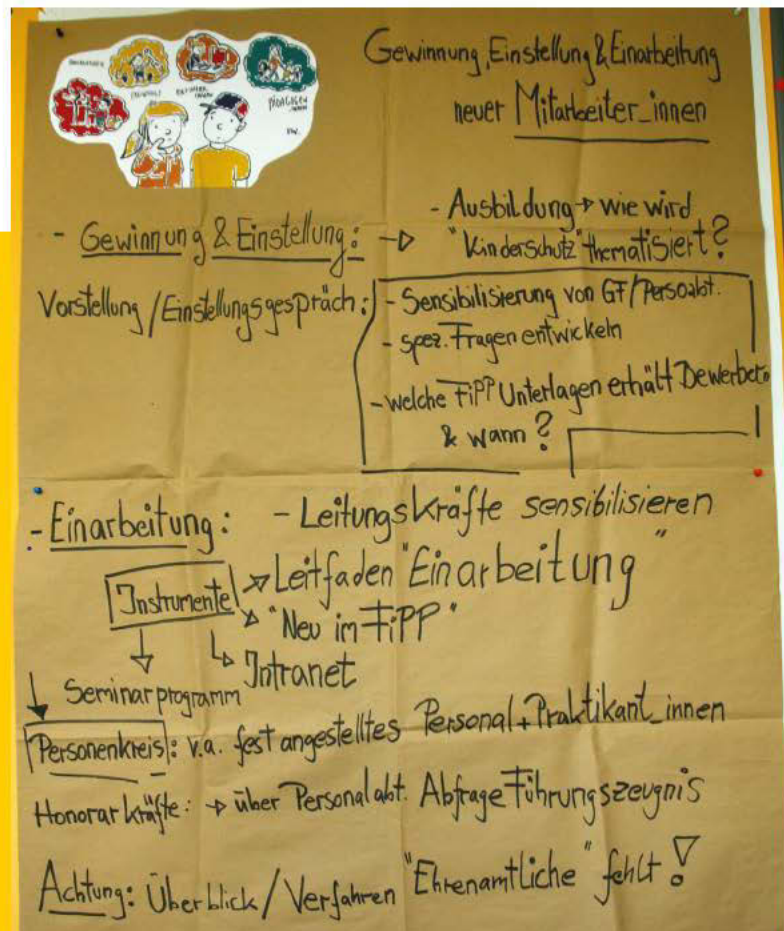 Gewinnung, Einstellung & Einarbeitung
neuer Mitarbeiter_innen
PÄDAGOGEN
- Gewinnung & Einstellung: → - Ausbildung → wie wird
"Kinderschutz" thematisiert?
Vorstellung/Einstellungsgespräch:
- Sensibilisierung von GF/Persoabt.
- spez. Fragen entwickeln
- welche FiPP Unterlagen erhält Bewerber
& wann?
- Einarbeitung: - Leitungskräfte sensibilisieren
Instrumente → Leitfaden "Einarbeitung"
→ "Neu im FiPP"
→ Intranet
Seminarprogramm
Personenkreis: v.a. fest angestelltes Personal + Praktikant_innen
Honorarkräfte: → über Personalabt. Abfrage Führungszeugnis
Achtung: Überblick/Verfahren "Ehrenamtliche" fehlt!